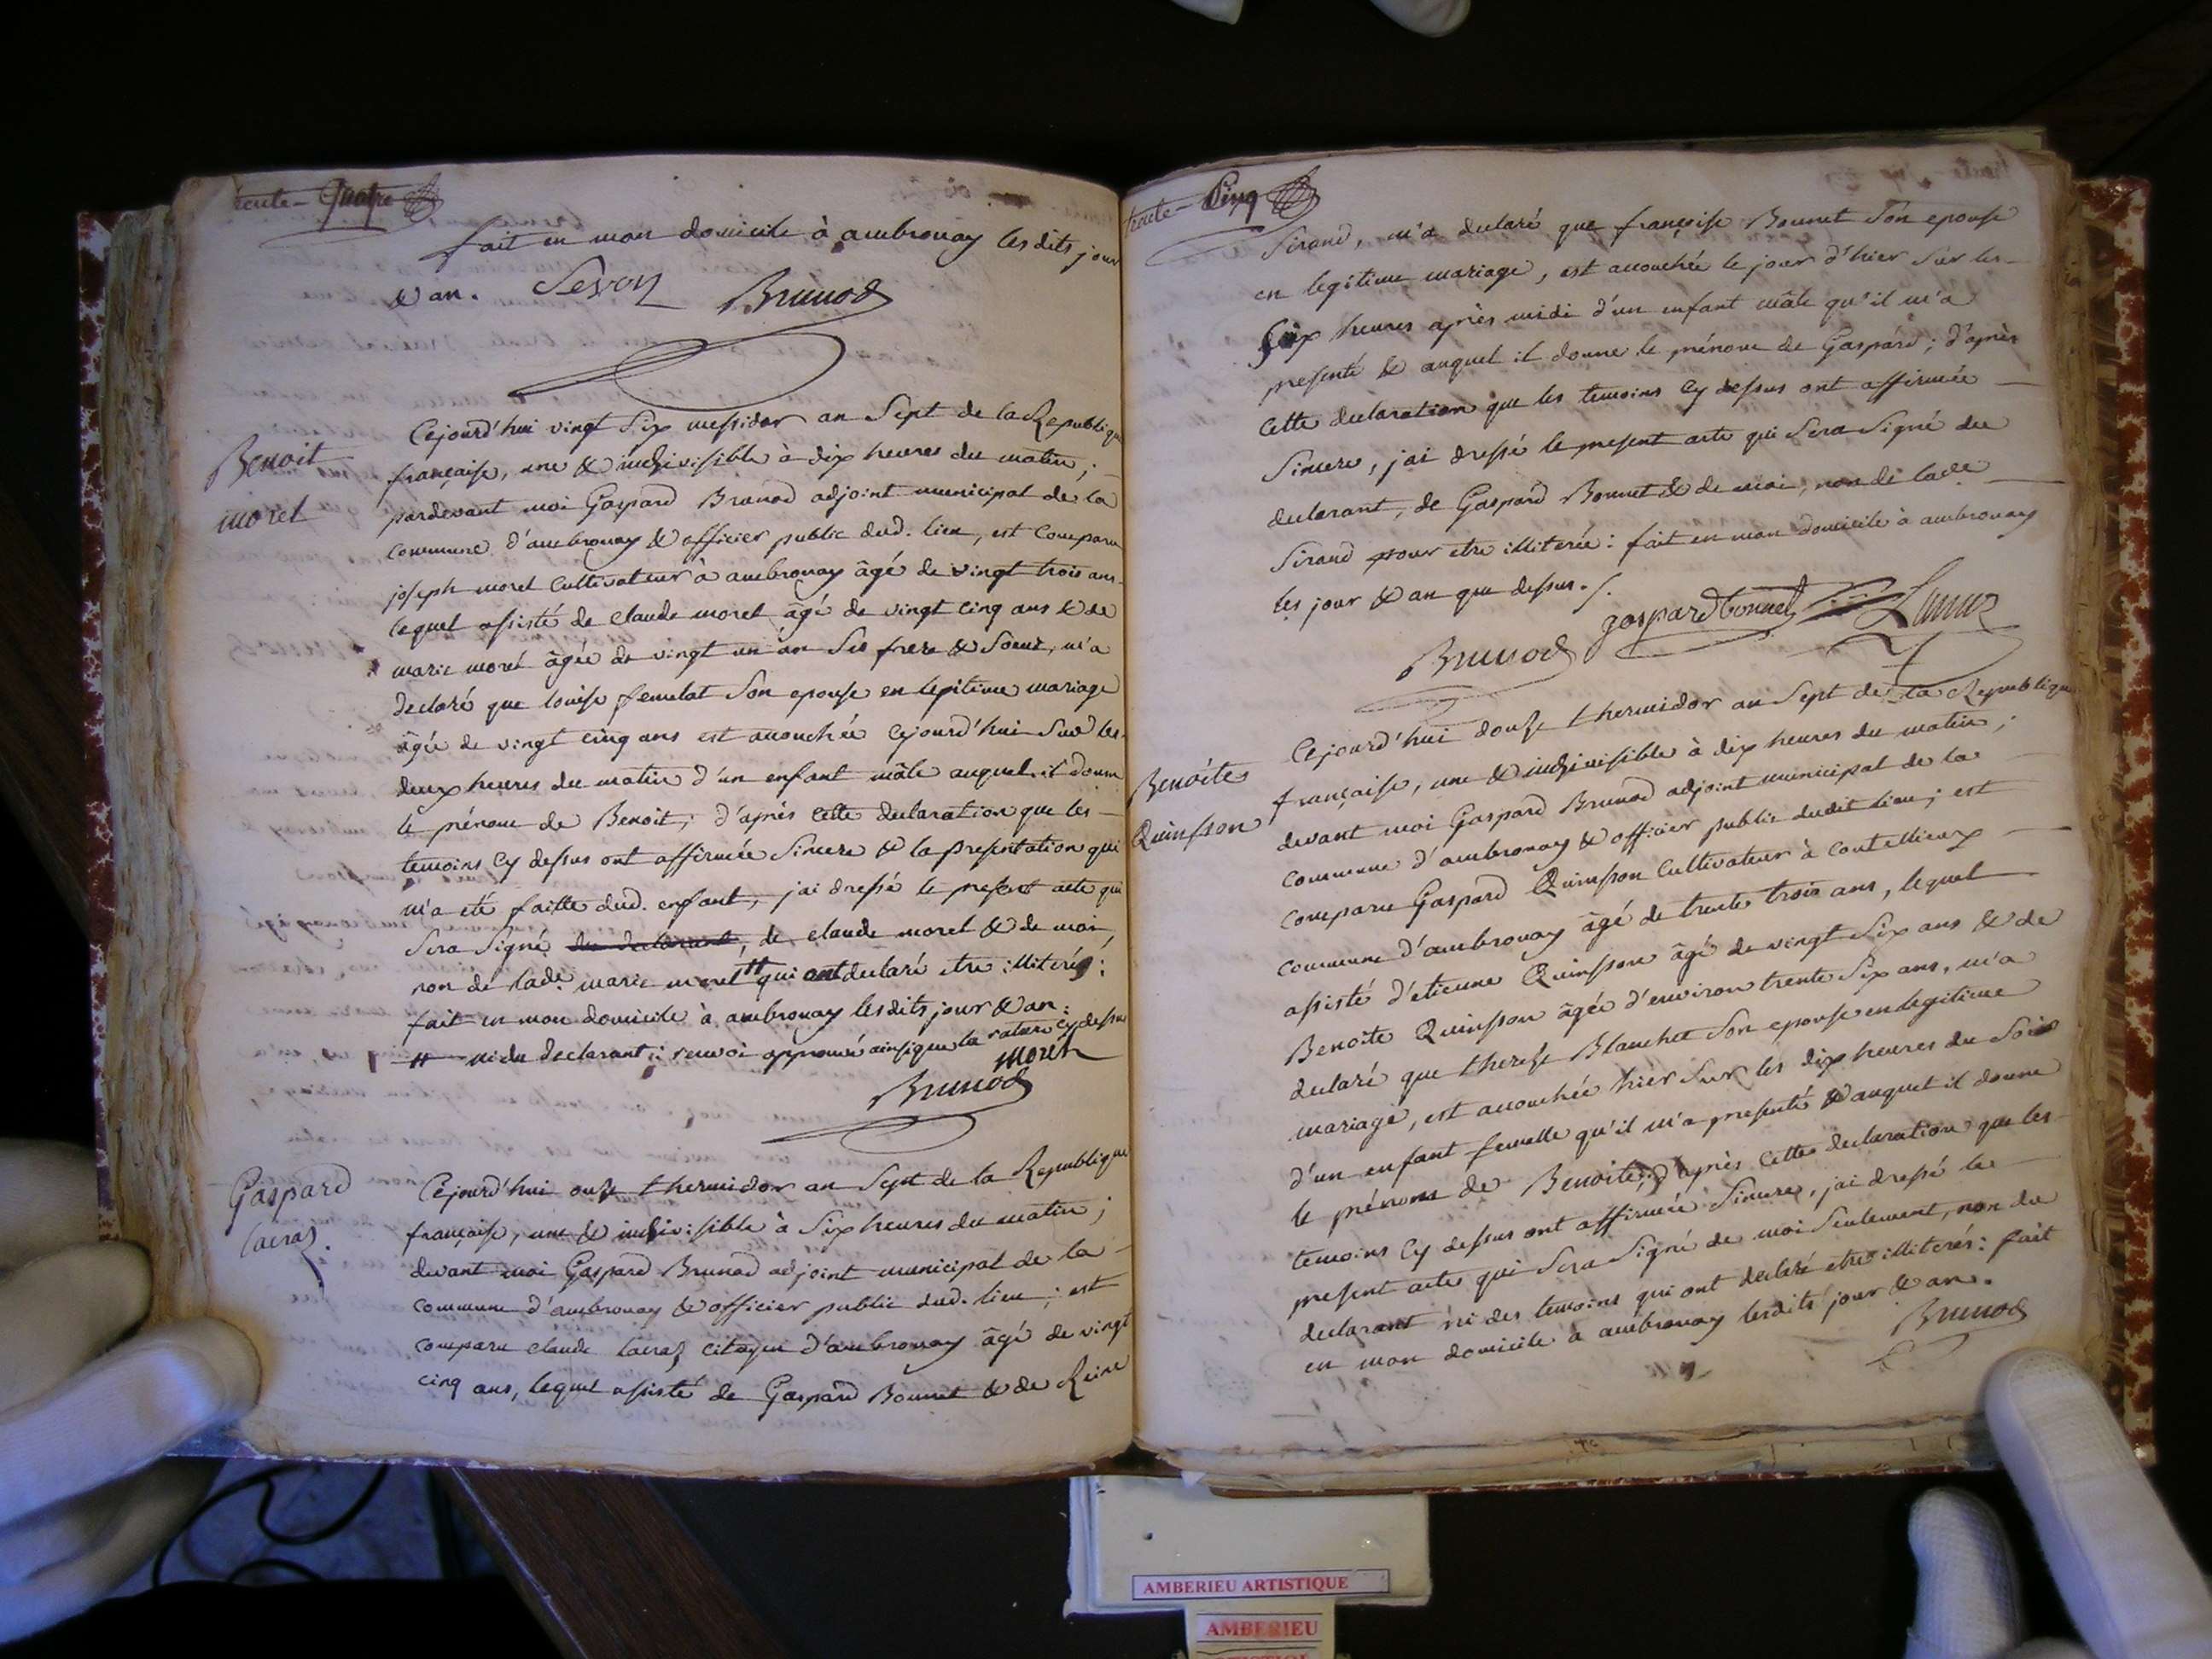 trente-Quatre
fait en mon domicile à ambronay lesdits jour
& an. Sevoz Brunod
Benoit
morel
Cejourd'hui vingt Six messidor an Sept de la Republique
française, une & indivisible à dix heures du matin;
pardevant moi Gaspard Brunod adjoint municipal de la
commune d'ambronay & officier public dud. lieu, est Comparu
joseph morel Cultivateur à ambronay âgé de vingt trois ans
lequel assisté de claude morel âgé de vingt cinq ans & de
marie morel âgée de vingt un an Ses frere & Soeur, m'a
declaré que louise femelat Son epouse en legitime mariage
âgée de vingt cinq ans est accouchée cejourd'hui Sur les
deux heures du matin d'un enfant mâle auquel il donne
le prénom de Benoit; d'après cette declaration que les
temoins cy dessus ont affirmée Sincere & la presentation qui
m'a été faitte dud. enfant, jai dressé le present acte qui
Sera Signé du declarant, de claude morel & de moi,
non de lade. marie morel # qui ont declaré etre illiterés:
fait en mon domicile à ambronay lesdits jour & an:
# ni du declarant: renvoi approuvé ainsi que la rature cy dessus
morel
Brunod
Gaspard
lacraz
Cejourd'hui onze thermidor an Sept de la Republique
française, une & indivisible à Six heures du matin;
devant moi Gaspard Brunod adjoint municipal de la
commune d'ambronay & officier public dud. lieu; est
comparu claude lacraz citoyen d'ambronay âgé de vingt
cinq ans, lequel assisté de Gaspard Bonnet & de Reine
trente-Cinq
Sirand, m'a declaré que françoise Bonnet Son epouse
en legitime mariage, est accouchée le jour d'hier Sur les
Six heures après midi d'un enfant mâle qu'il m'a
presenté & auquel il donne le prénom de Gaspard; d'après
cette declaration que les temoins cy dessus ont affirmée
Sincere, jai dressé le present acte qui Sera Signé du
declarant, de Gaspard Bonnet & de moi, non de lade.
Sirand pour etre illiterée: fait en mon domicile à ambronay
les jour & an que dessus./.
Brunod gaspard bonnet
Benoite
Quinsson
Cejourd'hui douze thermidor an Sept de la Republique
française, une & indivisible à dix heures du matin;
devant moi Gaspard Brunod adjoint municipal de la
commune d'ambronay & officier public dudit lieu; est
comparu Gaspard Quinsson Cultivateur à coutellieux
commune d'ambronay âgé de trente trois ans, lequel
assisté d'etienne Quinsson âgé de vingt Six ans & de
Benoite Quinsson âgée d'environ trente Six ans, m'a
declaré que therese Blanchet Son epouse en legitime
mariage, est accouchée hier Sur les dix heures du Soir
d'un enfant femelle qu'il m'a presenté & auquel il donne
le prénom de Benoite; d'après cette declaration que les
temoins cy dessus ont affirmée Sincere, jai dressé le
present acte qui Sera Signé de moi Seulement, non du
declarant ni des temoins qui ont declaré etre illiterés: fait
en mon domicile à ambronay lesdits jour & an.
Brunod
AMBERIEU ARTISTIQUE
AMBERIEU